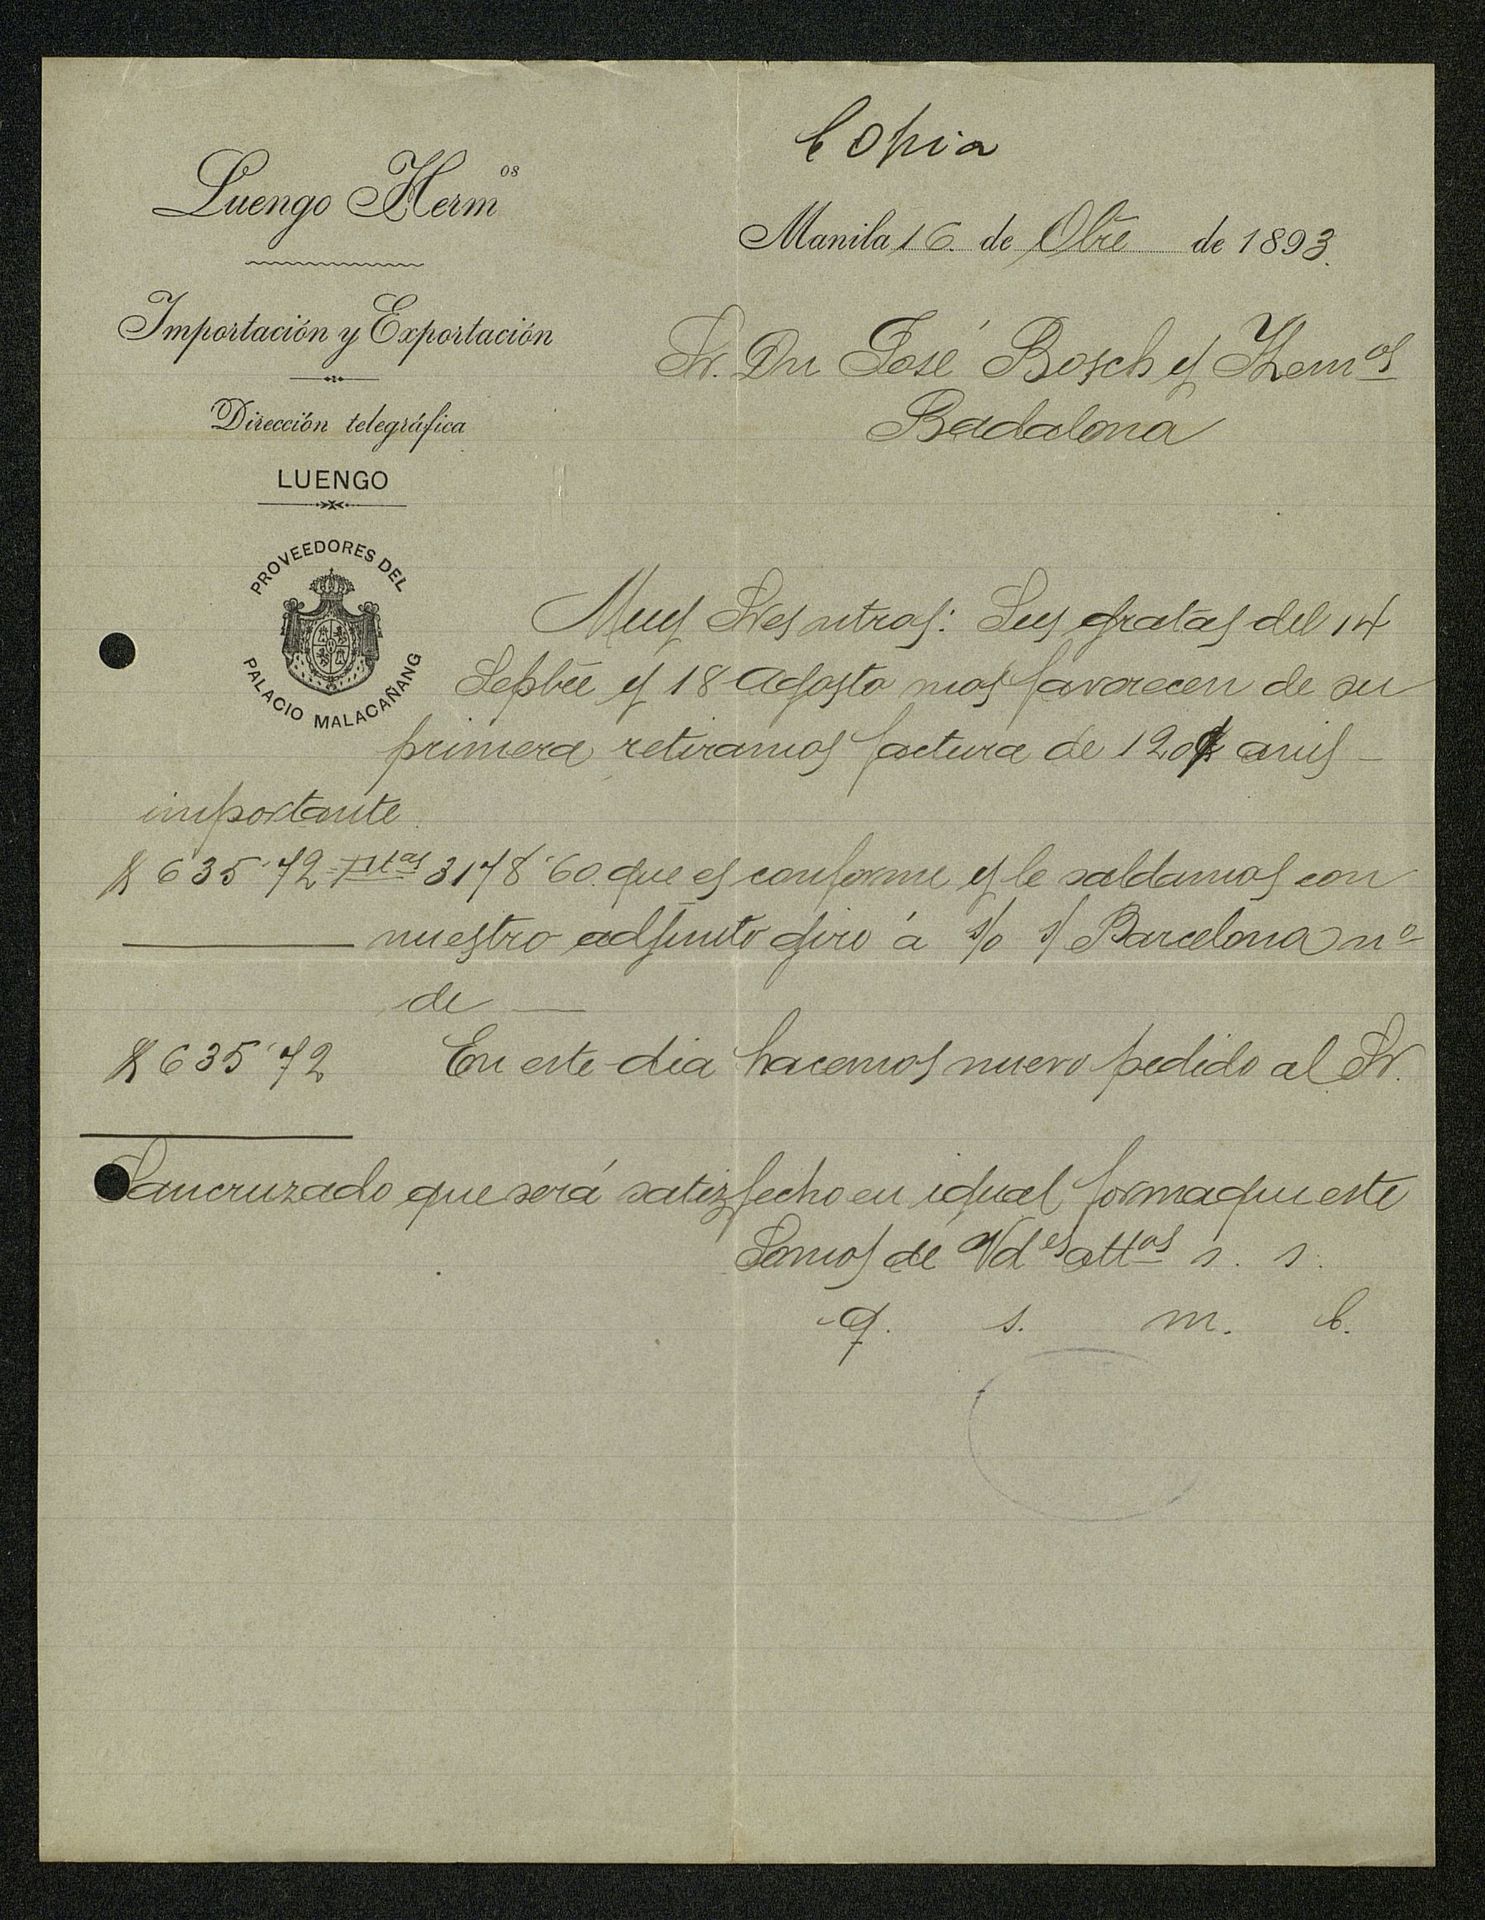 Copia
Luengo Herm.os
Importación y Exportación
Dirección telegráfica
LUENGO
PROVEEDORES DEL
PALACIO MALACAÑANG
Manila 16 de Obre de 1893.
Sr. Dn José Bosch y Hermos
Badalona
Muy Sres ntros: Sus gratas del 14
Sepbre y 18 Agosto nos favorecen de su
primera retiramos factura de 120 anis
importante
$ 635'72 Ptas 3178'60 que es conforme y le saldamos con
nuestro adjunto giro á s/o s/ Barcelona nº
de
$ 635'72 En este dia hacemos nuevo pedido al Sr.
Sancruzado que será satizfecho en igual forma que este
Somos de Vdes attos s. s.
q. s. m. b.